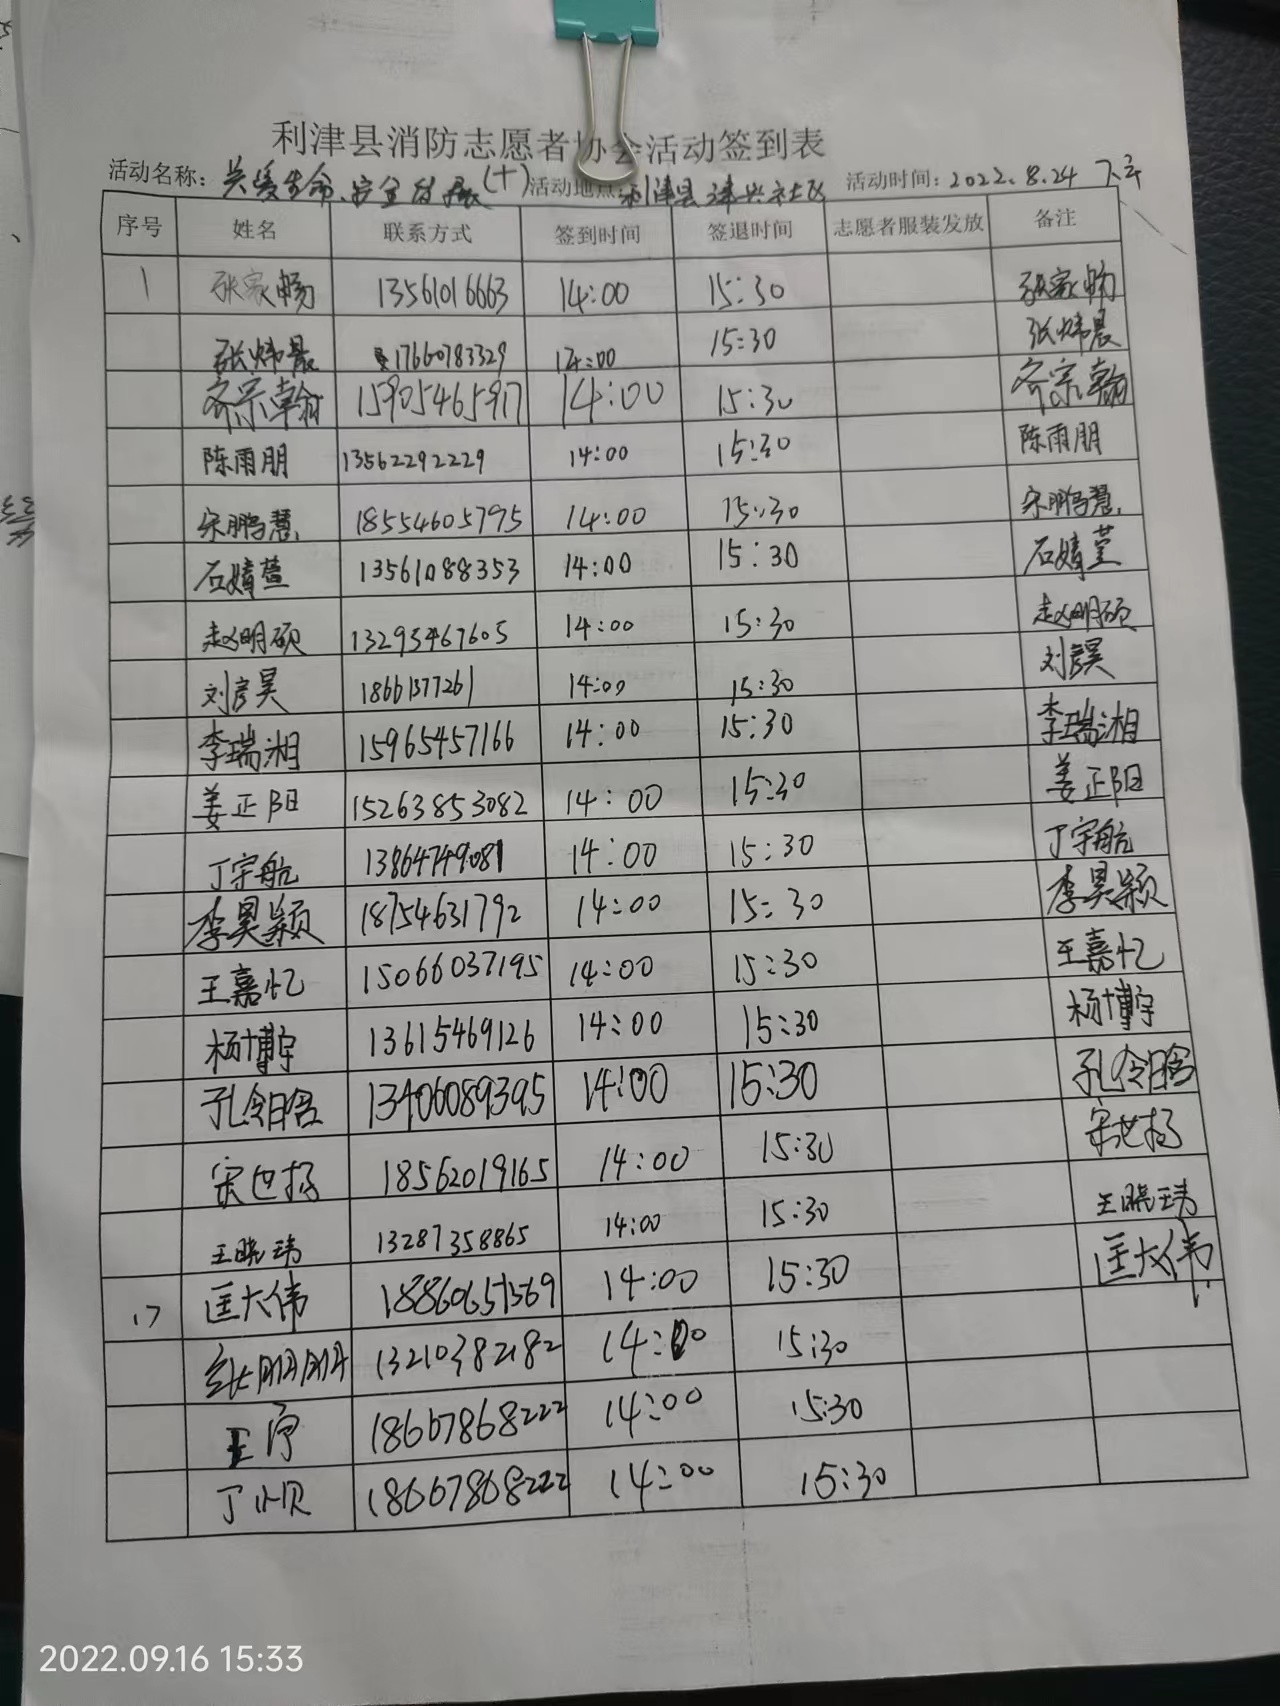 利津县消防志愿者协会活动签到表
活动名称: 关爱生命、安全发展(十) 活动地点: 利津县津兴社区 活动时间: 2022.8.24 下午
序号 姓名 联系方式 签到时间 签退时间 志愿者服装发放 备注
1 张家畅 13561016663 14:00 15:30 张家畅
张炜晨 17660783329 14:00 15:30 张炜晨
齐宗翰 15905465917 14:00 15:30 齐宗翰
陈雨朋 13562292229 14:00 15:30 陈雨朋
宋鹏慧 18554605795 14:00 15:30 宋鹏慧
石婧萱 13561088353 14:00 15:30 石婧萱
赵明硕 13295467605 14:00 15:30 赵明硕
刘彦昊 18661377261 14:00 15:30 刘彦昊
李瑞湘 15965457166 14:00 15:30 李瑞湘
姜正阳 15263853082 14:00 15:30 姜正阳
丁宇航 13864749081 14:00 15:30 丁宇航
李昊颖 18754631792 14:00 15:30 李昊颖
王嘉忆 15066037195 14:00 15:30 王嘉忆
杨博宇 13615469126 14:00 15:30 杨博宇
孔令晗 13406089395 14:00 15:30 孔令晗
宋世扬 18562019165 14:00 15:30 宋世扬
王晓玮 13287358865 14:00 15:30 王晓玮
17 匡大伟 18860651569 14:00 15:30 匡大伟
13210382182 14:00 15:30
王 18667868222 14:00 15:30
丁 18667868222 14:00 15:30
2022.09.16 15:33